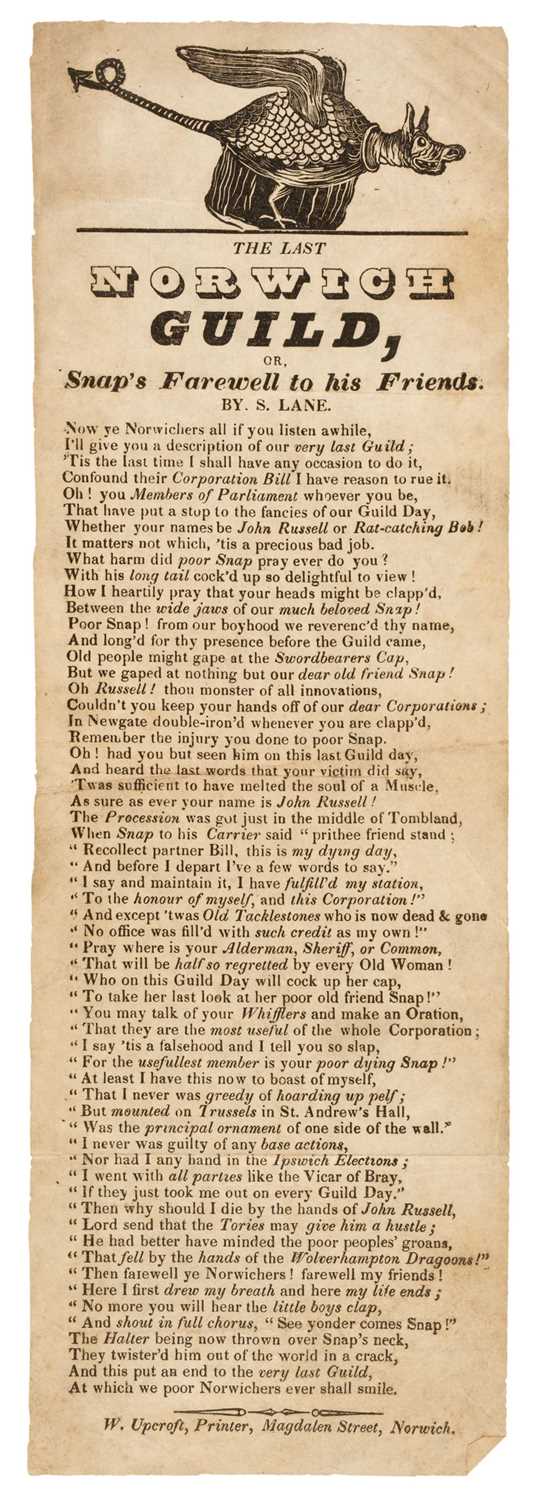 THE LAST
NORWICH
GUILD,
OR,
Snap's Farewell to his Friends.
BY. S. LANE.
Now ye Norwichers all if you listen awhile,
I'll give you a description of our very last Guild;
'Tis the last time I shall have any occasion to do it,
Confound their Corporation Bill I have reason to rue it.
Oh! you Members of Parliament whoever you be,
That have put a stop to the fancies of our Guild Day,
Whether your names be John Russell or Rat-catching Bob!
It matters not which, 'tis a precious bad job.
What harm did poor Snap pray ever do you?
With his long tail cock'd up so delightful to view!
How I heartily pray that your heads might be clapp'd,
Between the wide jaws of our much beloved Snap!
Poor Snap! from our boyhood we reverenc'd thy name,
And long'd for thy presence before the Guild came,
Old people might gape at the Swordbearers Cap,
But we gaped at nothing but our dear old friend Snap!
Oh Russell! thou monster of all innovations,
Couldn't you keep your hands off of our dear Corporations;
In Newgate double-iron'd whenever you are clapp'd,
Remember the injury you done to poor Snap.
Oh! had you but seen him on this last Guild day,
And heard the last words that your victim did say,
'Twas sufficient to have melted the soul of a Muscle,
As sure as ever your name is John Russell!
The Procession was got just in the middle of Tombland,
When Snap to his Carrier said "prithee friend stand;
"Recollect partner Bill, this is my dying day,
"And before I depart I've a few words to say."
"I say and maintain it, I have fulfill'd my station,
"To the honour of myself, and this Corporation!"
"And except 'twas Old Tacklestones who is now dead & gone
"No office was fill'd with such credit as my own!"
"Pray where is your Alderman, Sheriff, or Common,
"That will be half so regretted by every Old Woman!
"Who on this Guild Day will cock up her cap,
"To take her last look at her poor old friend Snap!"
"You may talk of your Whifflers and make an Oration,
"That they are the most useful of the whole Corporation;
"I say 'tis a falsehood and I tell you so slap,
"For the usefullest member is your poor dying Snap!"
"At least I have this now to boast of myself,
"That I never was greedy of hoarding up pelf;
"But mounted on Trussels in St. Andrew's Hall,
"Was the principal ornament of one side of the wall."
"I never was guilty of any base actions,
"Nor had I any hand in the Ipswich Elections;
"I went with all parties like the Vicar of Bray,
"If they just took me out on every Guild Day."
"Then why should I die by the hands of John Russell,
"Lord send that the Tories may give him a hustle;
"He had better have minded the poor peoples' groans,
"That fell by the hands of the Wolverhampton Dragoons!"
"Then farewell ye Norwichers! farewell my friends!
"Here I first drew my breath and here my life ends;
"No more you will hear the little boys clap,
"And shout in full chorus, "See yonder comes Snap!"
The Halter being now thrown over Snap's neck,
They twister'd him out of the world in a crack,
And this put an end to the very last Guild,
At which we poor Norwichers ever shall smile.
W. Upcroft, Printer, Magdalen Street, Norwich.